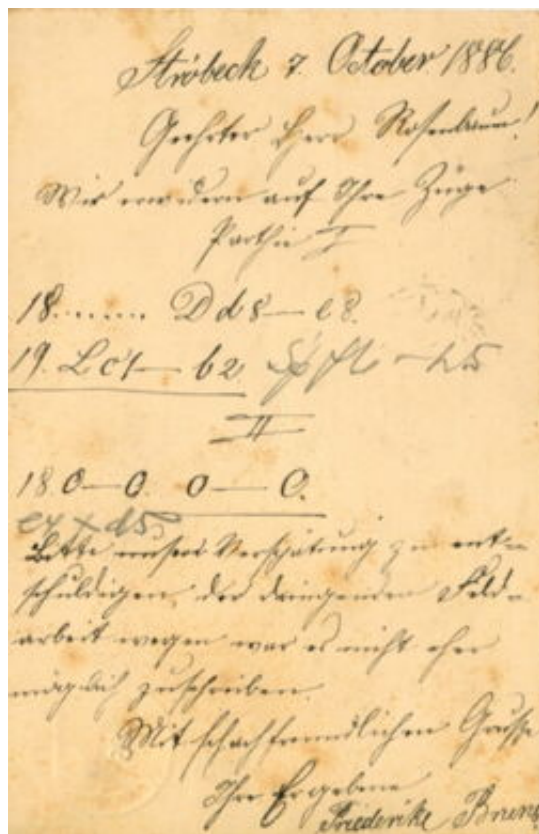 Ströbeck 7. October 1886.
Geehrter Herr Rosenbaum!
Wir erwidern auf Ihre Züge
Parthie I
18. ..... Dd8—e8.
19. Lc1—b2. —h5
II
18. 0—0. 0—0.
e4 x d5
Bitte unsere Verspätung zu ent-
schuldigen, der dringenden Feld-
arbeit wegen war es nicht eher
möglich zu schreiben.
Mit schachfreundlichen Grusse
Ihre Ergebene
Friederike